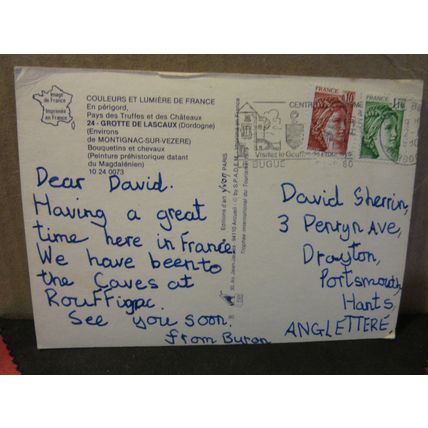 Image
de France
Imprimée
en France
COULEURS ET LUMIÈRE DE FRANCE
En périgord,
Pays des Truffes et des Châteaux
24 - GROTTE DE LASCAUX (Dordogne)
(Environs
de MONTIGNAC-SUR-VEZERE)
Bouquetins et chevaux
(Peinture préhistorique datant
du Magdalénien)
10 24 0073
Dear David.
Having a great
time here in France
We have been to
the Caves at
Rouffigac.
See you soon.
from Buron
Editions d'art yvon PARIS
Imprimé en France
FRANCE
FRANCE
CENTRE
Visitez le Gouffre
LE BUGUE
David Sherrin,
3 Penryn Ave,
Drayton,
Portsmouth,
Hants,
ANGLETTERE,